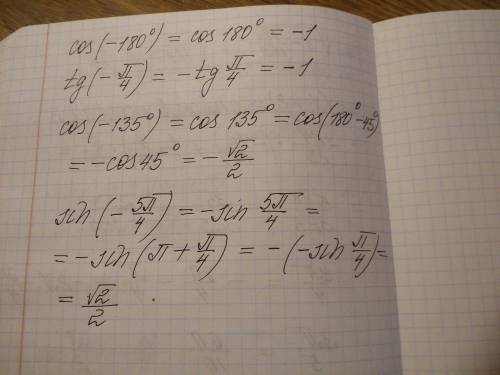 cos(-180°) = cos 180° = -1
tg(-π/4) = -tg π/4 = -1
cos(-135°) = cos 135° = cos(180°-45°)
= -cos 45° = -√2/2
sin(-5π/4) = -sin 5π/4 =
= -sin(π + π/4) = -(-sin π/4) =
= √2/2